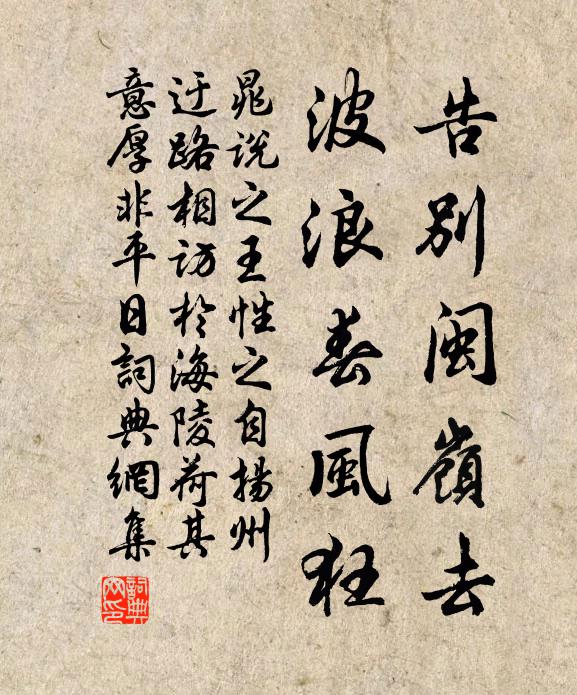 告別閩嶺去
波浪春風狂
晁說之王性之自揚州
迂路相訪於海陵荷其
意厚非平日詞典網集
詞典
网印